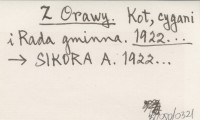 Z Orawy. Kot, cygani
i Rada gminna. 1922...
→ SIKORA A. 1922...